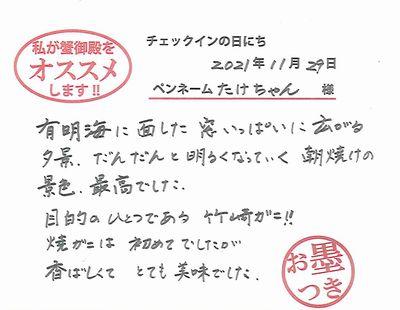 私が蟹御殿を
オススメ
します!!
チェックインの日にち
2021年11月29日
ペンネーム たけちゃん 様
有明海に面した窓いっぱいに広がる
夕景、だんだんと明るくなっていく朝焼けの
景色、最高でした。
目的のひとつである竹崎ガニ!!
焼ガニは初めてでしたが
香ばしくてとても美味でした。
お墨
つき